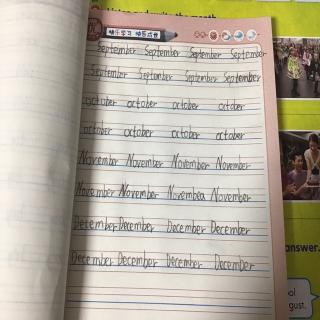 the month
快乐学习 快乐成长
September September September September
September September September September
october october october october
october october october october
November November November November
November November Novembea November
Detember December December December
December December December December
answer.
ool
gust.